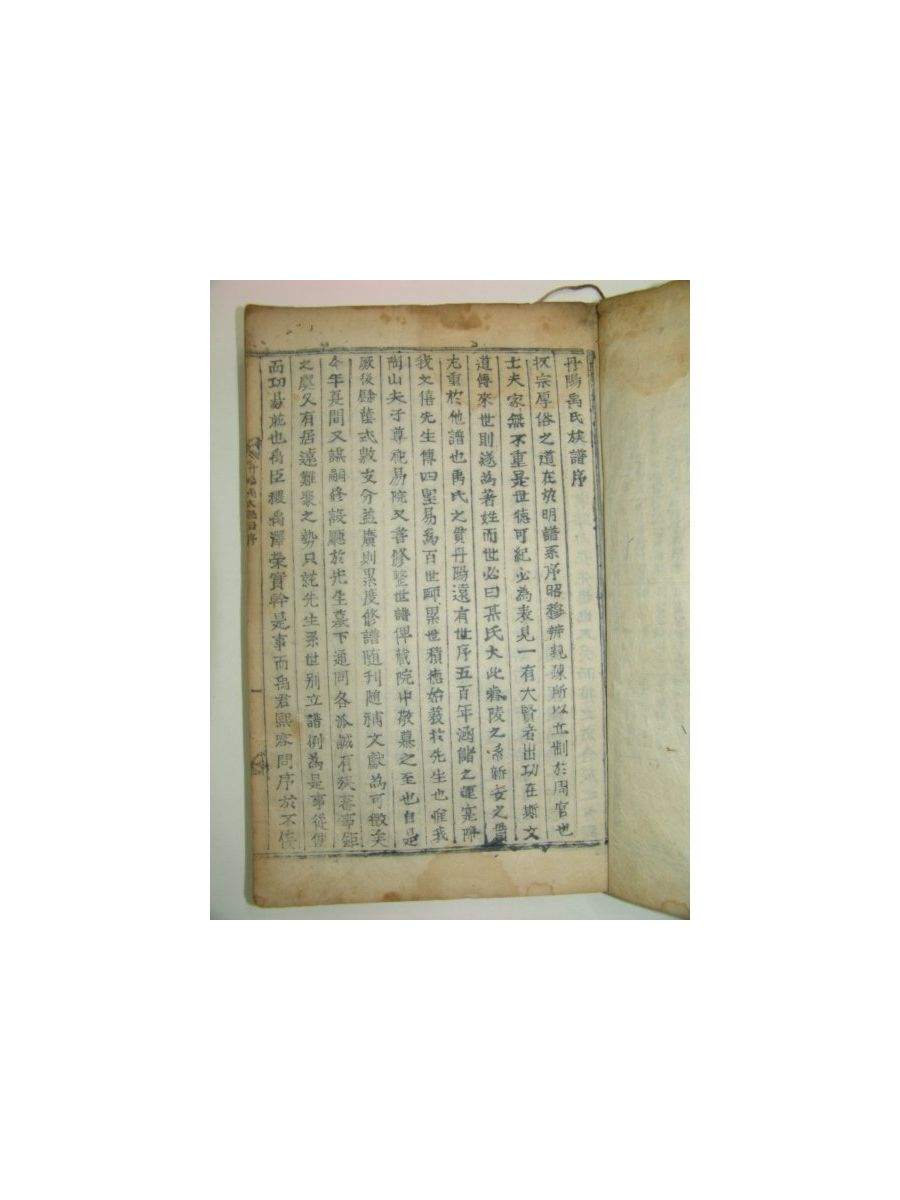 丹陽禹氏族譜序
收宗厚俗之道在於明譜系序昭穆辨親疎所以立制於周官也
士夫家無不重是世德可紀必為表見一有大賢者出功在斯文
道傳來世則遂為著姓而世必曰某氏大此舂陵之系新安之貫
尤重於他譜也禹氏之貫丹陽遠有世序五百年涵儲之運寔降
我文僖先生傳四聖易為百世師累世積德始發於先生也惟我
陶山夫子尊祀易院又著修整世譜俾藏院中敬慕之至也自是
厥後肆蕃式敷支分益廣則累度修譜隨刊隨補文獻為可徵矣
今年夏間又謀嗣修設廳於先生墓下通同各派鹹有擴蓄事鉅
之慮又有居遠難聚之勢只就先生系世別立譜例為是事從便
而功易就也禹臣稷禹澤榮實幹是事而禹君熙容問序於不佞